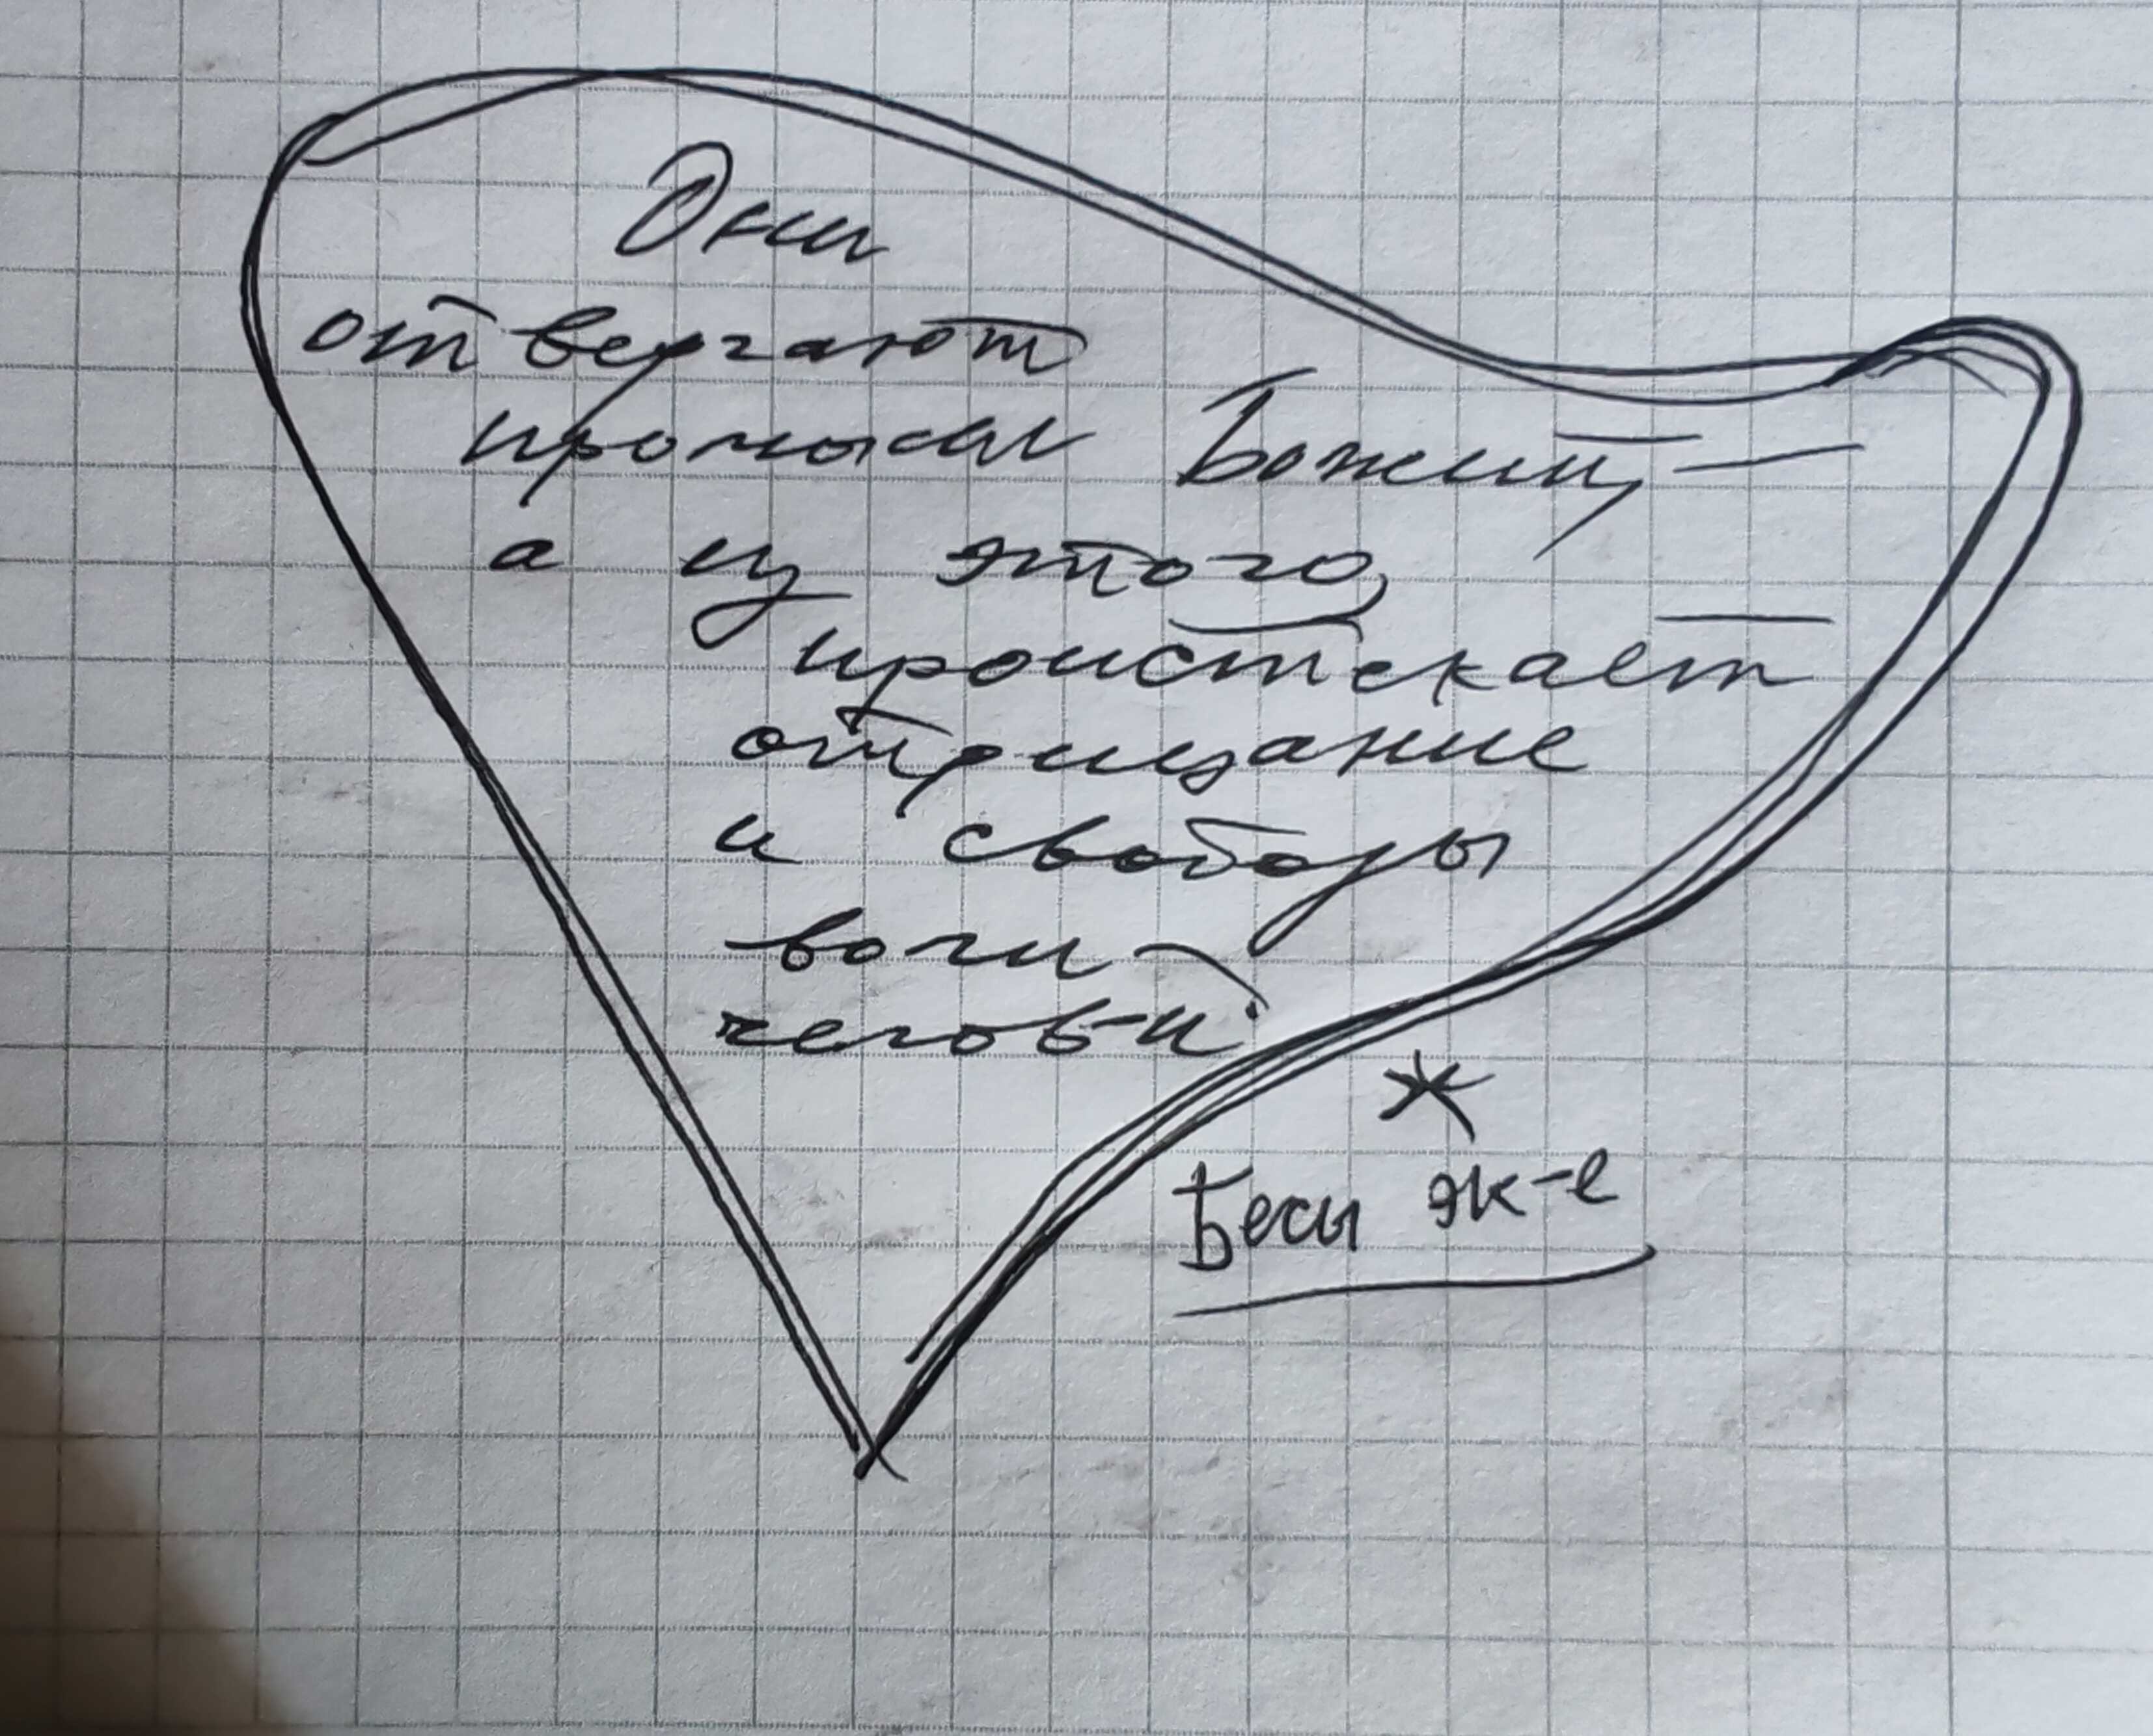 Они
отвергают
промысл Божий, —
а из этого,
проистекает
отрицание
и свободы
воли —
челов-й.
*
Бесы эк-е